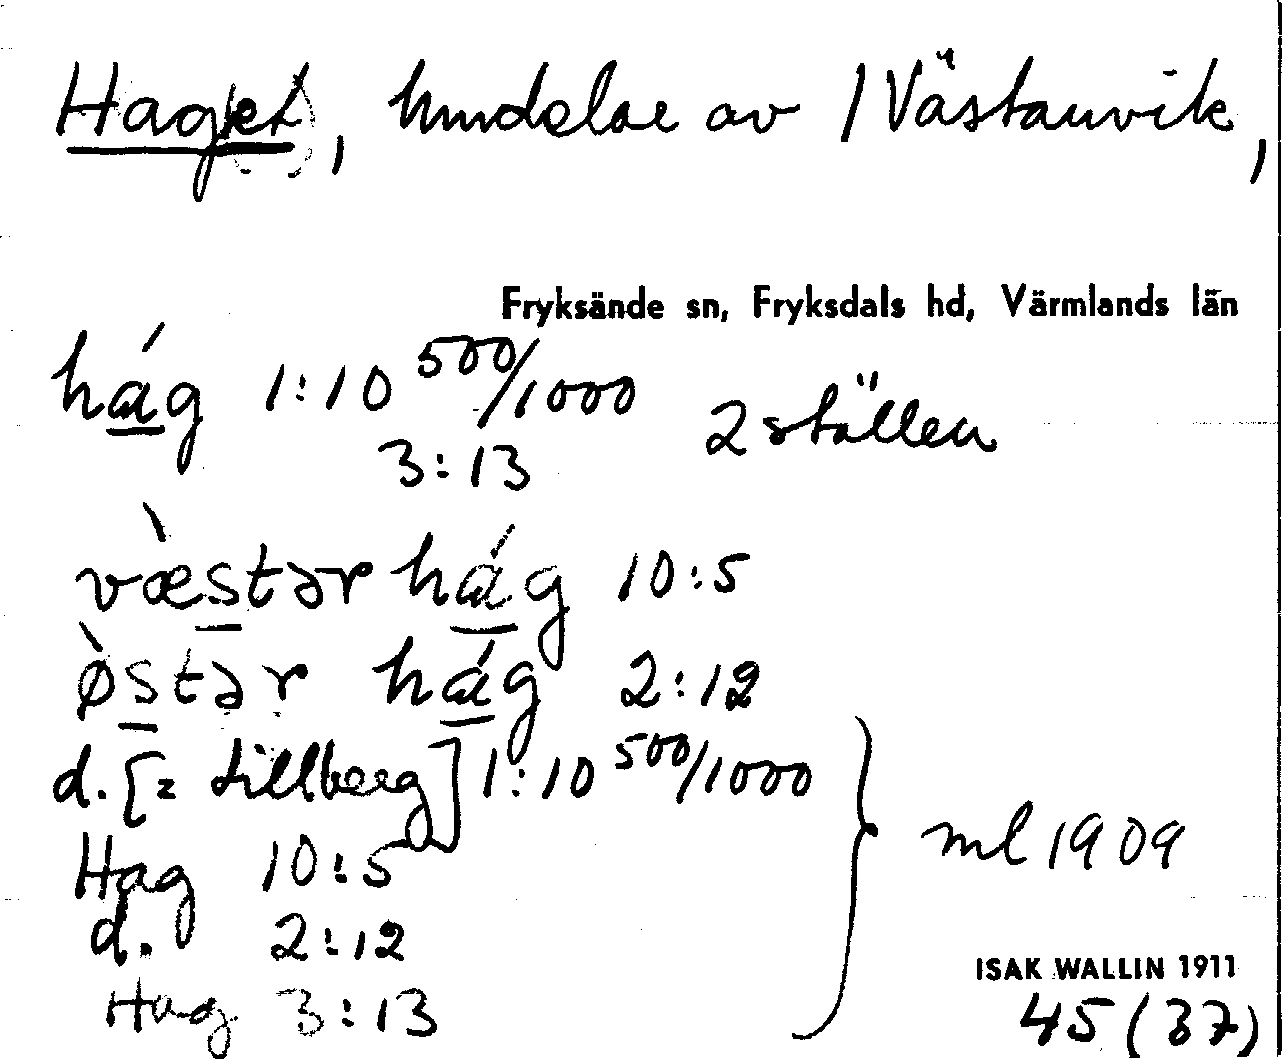 Hag(et), hmdelar av 1 Västanvik,
Fryksände sn, Fryksdals hd, Värmlands län
hág 1:10 500/1000 2 ställen
3:13
væ̀stər hág 10:5
ø̀stər hág 2:12
d. [= Lillberg] 1:10 500/1000
Hag 10:5
d. 2:12
Hag 3:13
ml 1909
ISAK WALLIN 1911
45 (37)